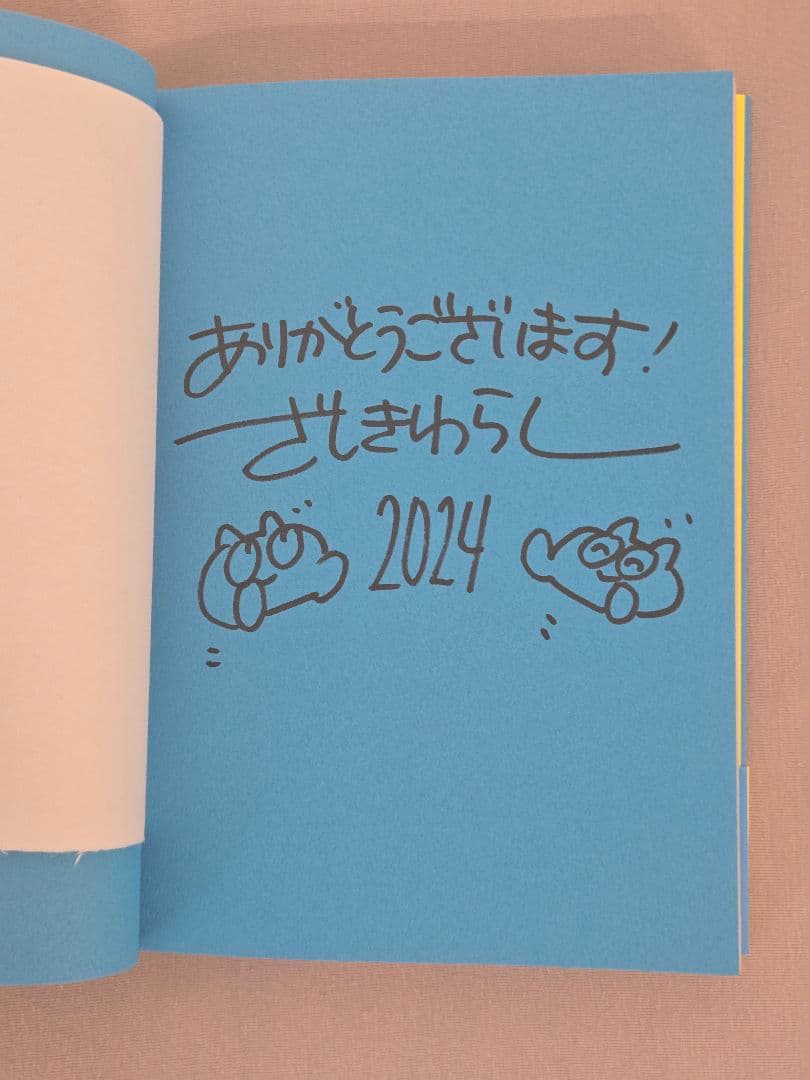 ありがとうございます!
ざしきわらし
2024